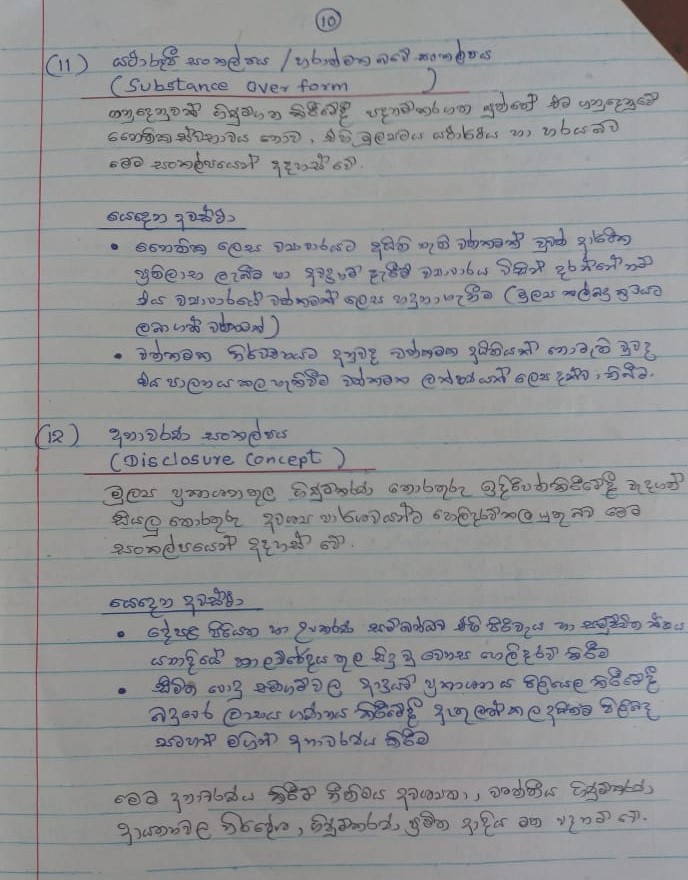 10
(11) යථාරූපී සංකල්පය / හරාත්මක බවේ සංකල්පය
(Substance over form)
ගනුදෙනුවක් ගිණුම්ගත කිරීමේදී පදනම් කරගත යුත්තේ එම ගනුදෙනුවේ
නෛතික ස්වභාවය නොව, එහි මූල්‍යමය යථාර්ථය හා හරයබව
මෙම සංකල්පයෙන් අදහස් වේ.
යෙදෙන අවස්ථා
• නෛතික ලෙස ව්‍යාපාරයට අයිති නැති වත්කමක් වුවත් ආර්ථික
ප්‍රතිලාභ ලැබීම හා අවදානම දැරීම ව්‍යාපාරය විසින් දරන්නේ නම්
එය ව්‍යාපාරයේ වත්කමක් ලෙස හඳුනාගැනීම (මූල්‍ය කල්බදු ක්‍රමයට
ලබාගත් වත්කමක්)
• වත්කමක නිර්වචනයට අනුවද වත්කමක අයිතියක් නොමැති වුවද
එය පාලනය කල හැකිවීම වත්කමක ලක්ෂණයක් ලෙස දක්වා තිබීම.
(12) අනාවරණ සංකල්පය
(Disclosure concept)
මූල්‍ය ප්‍රකාශන තුල ගිණුම්කරණ තොරතුරු ඉදිරිපත් කිරීමේදී වැදගත්
සියලු තොරතුරු අවශ්‍ය පාර්ශවයන්ට හෙලිදරව් කල යුතු බව මෙම
සංකල්පයෙන් අදහස් වේ.
යෙදෙන අවස්ථා
• දේපළ පිරියත හා උපකරණ සම්බන්ධව එහි පිරිවැය හා සමුච්චිත ක්ෂය
යනාදියේ කාලච්ඡේදය තුල සිදු වූ වෙනස හෙලිදරව් කිරීම
• සීමිත පොදු සමාගම්වල ආදායම් ප්‍රකාශනය පිලියෙල කිරීමේදී
බදුපෙර ලාභය ගණනය කිරීමේදී ඇතුලත් කල අයිතම පිලිබඳ
සටහන් මගින් අනාවරණය කිරීම
මෙම අනාවරණය කිරීම් නීතිමය අවශ්‍යතා, වෘත්තීය ගිණුම්කරණ
ආයතනවල නිර්දේශ, ගිණුම්කරණ ප්‍රමිත ආදිය මත පදනම් වේ.